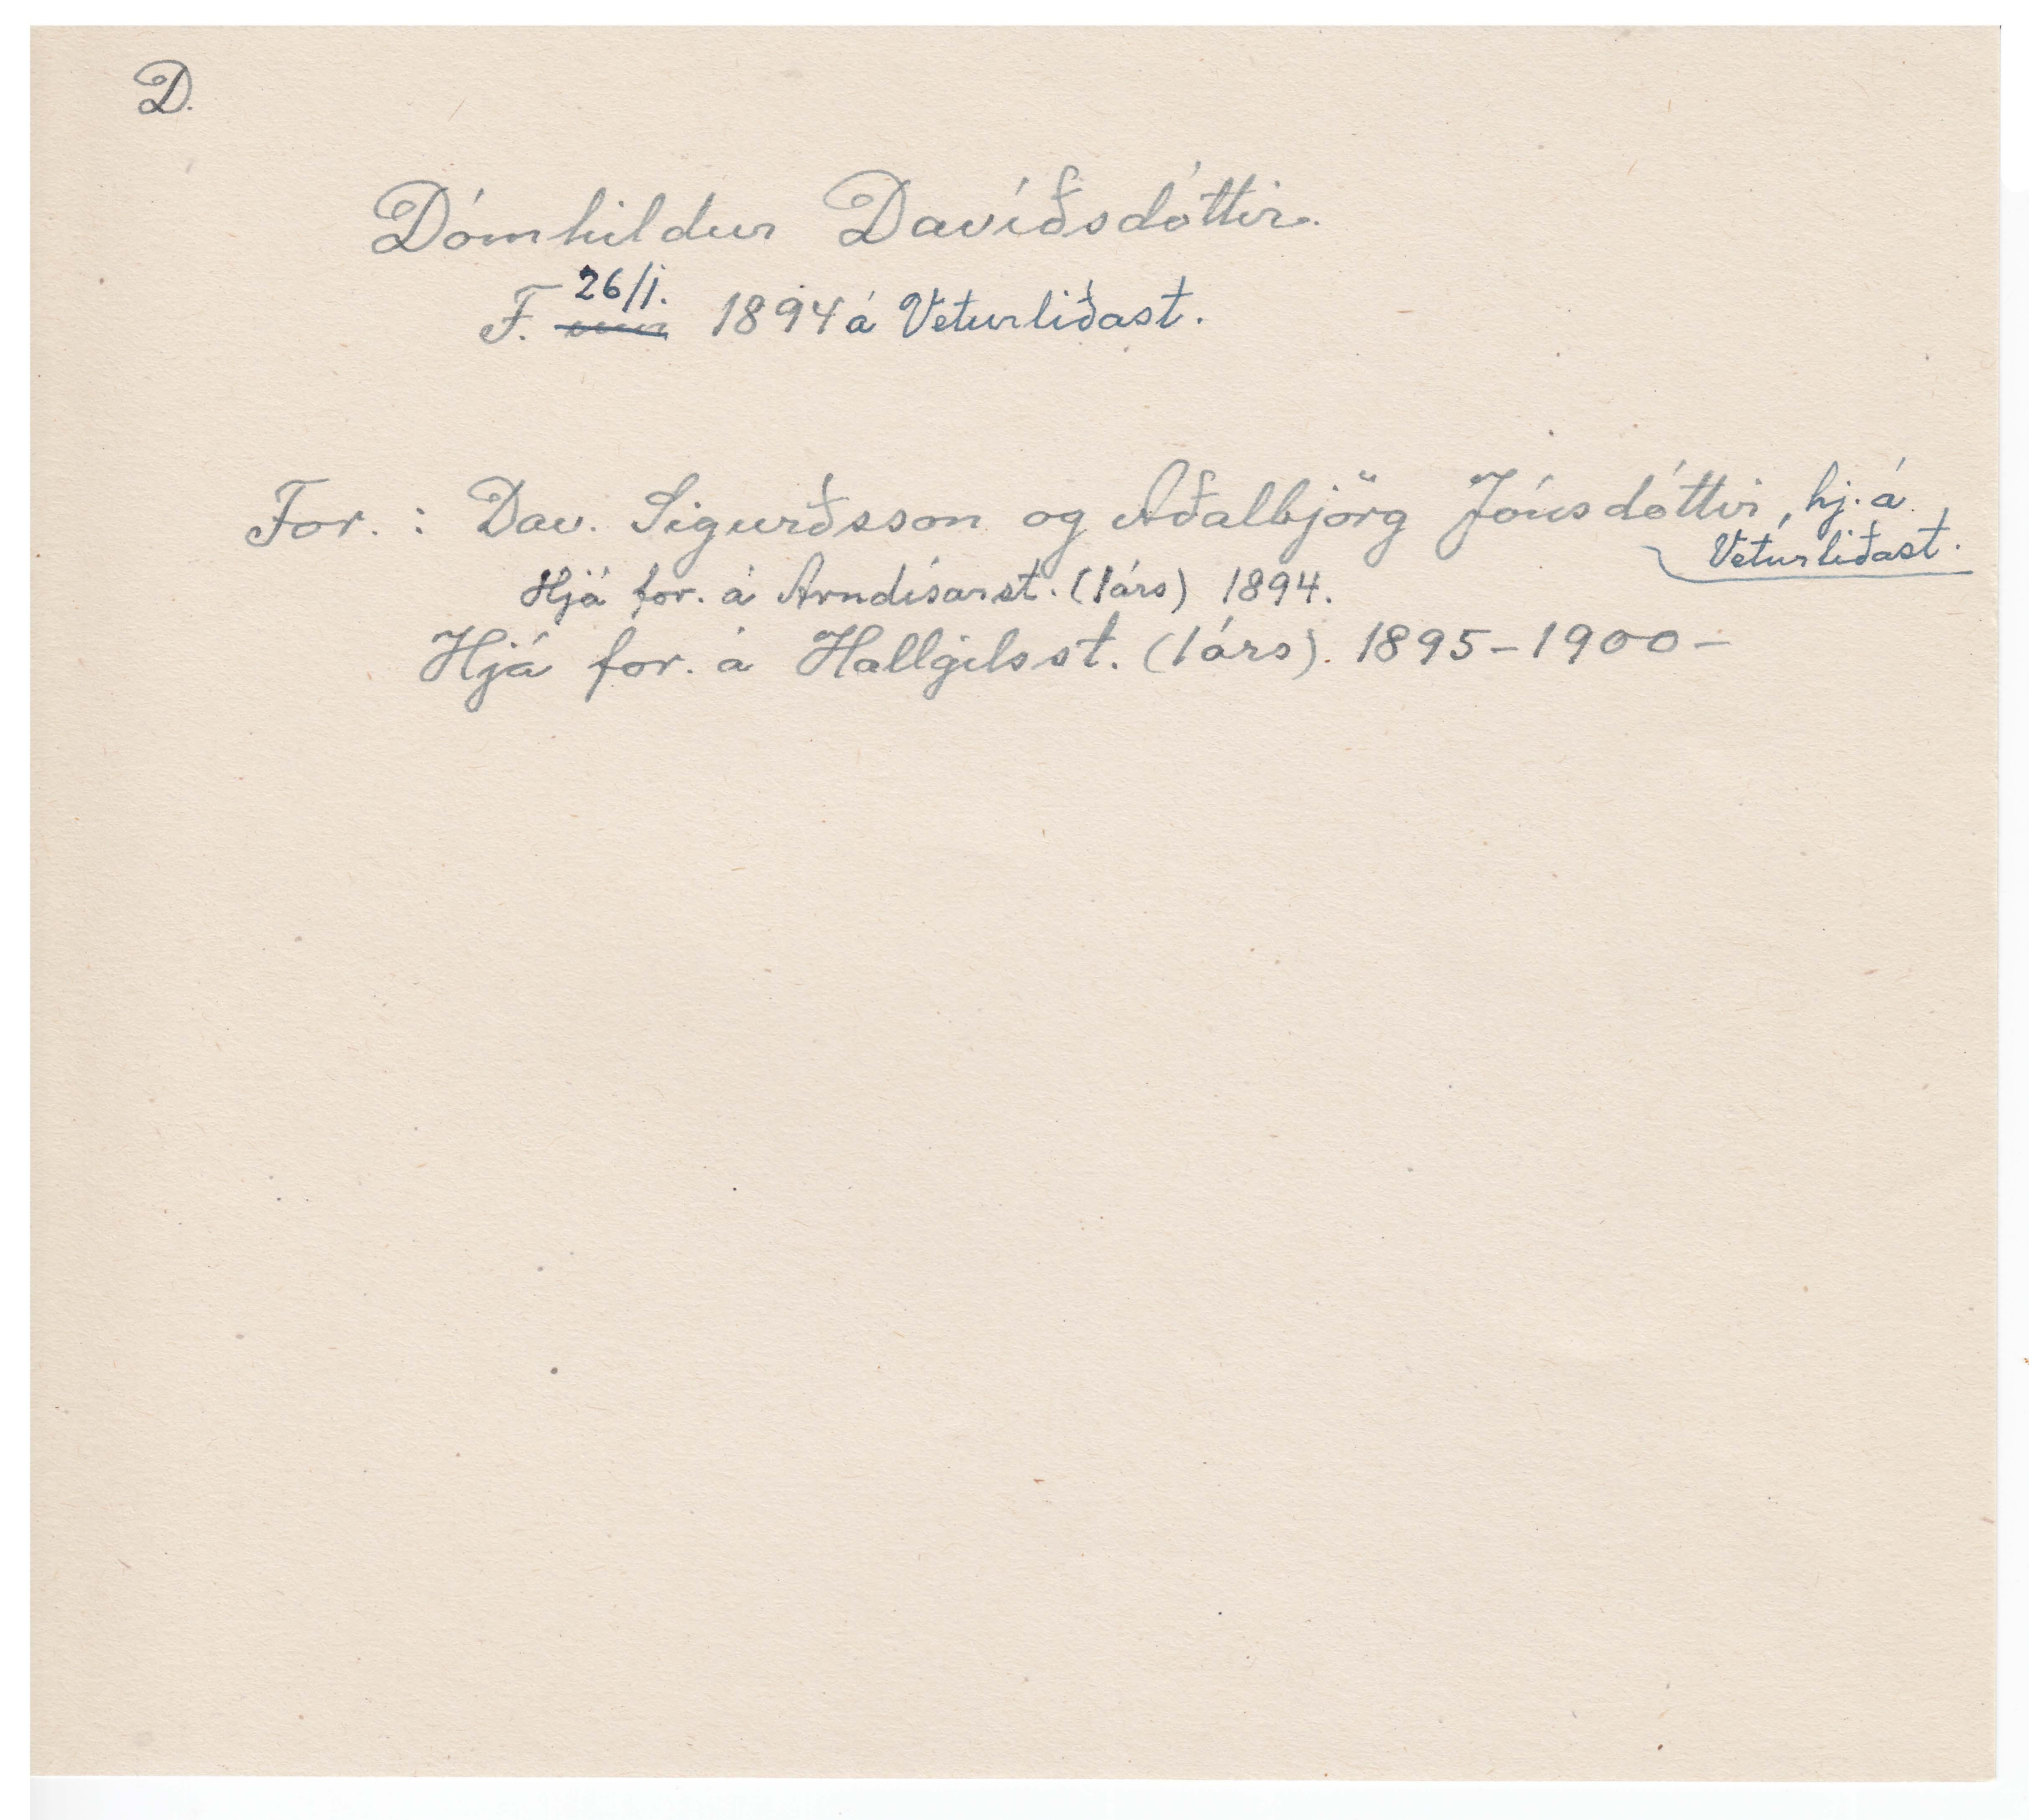 D.
Dómhildur Davíðsdóttir.
F. 26/1. 1894 á Veturliðast.
For. : Dav. Sigurðsson og Aðalbjörg Jónsdóttir, hj. á
Veturliðast.
Hjá for. á Arndísarst. (1árs) 1894.
Hjá for. á Hallgilsst. (1árs). 1895-1900-